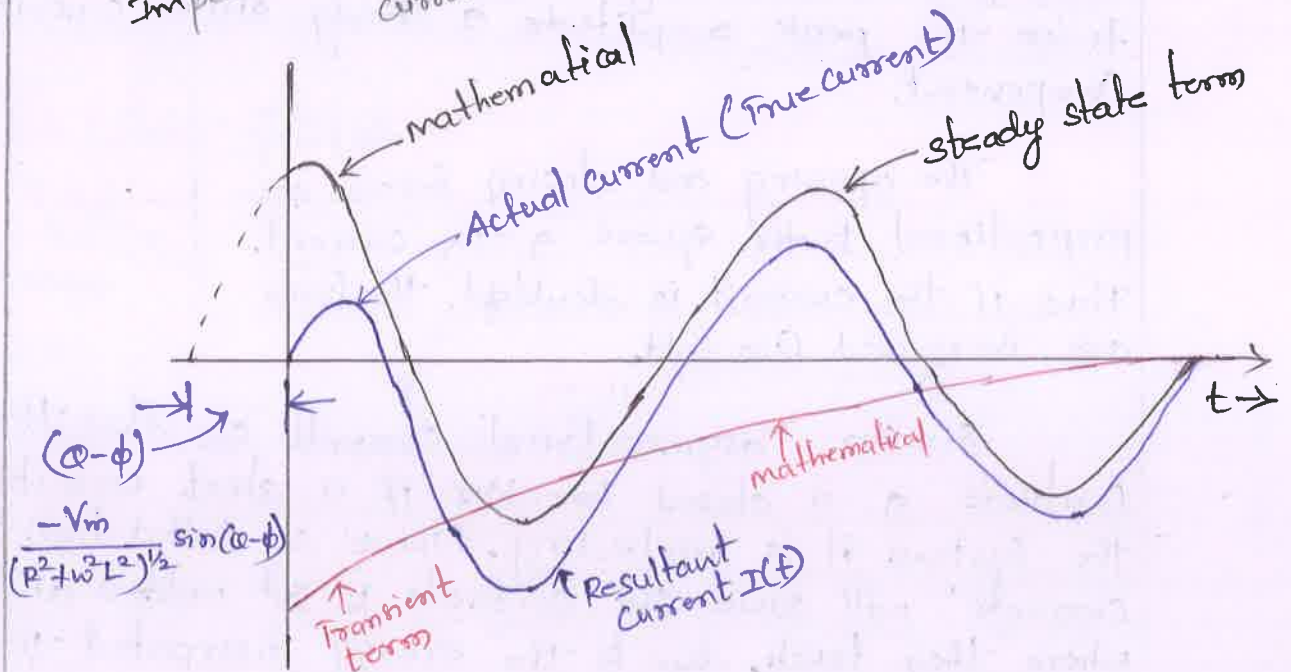 mathematical
Actual current (True current)
steady state term
t→
(θ-ϕ)
-Vm
(R²+ω²L²)^½ sin(θ-ϕ)
mathematical
Transient
term
Resultant
current I(t)